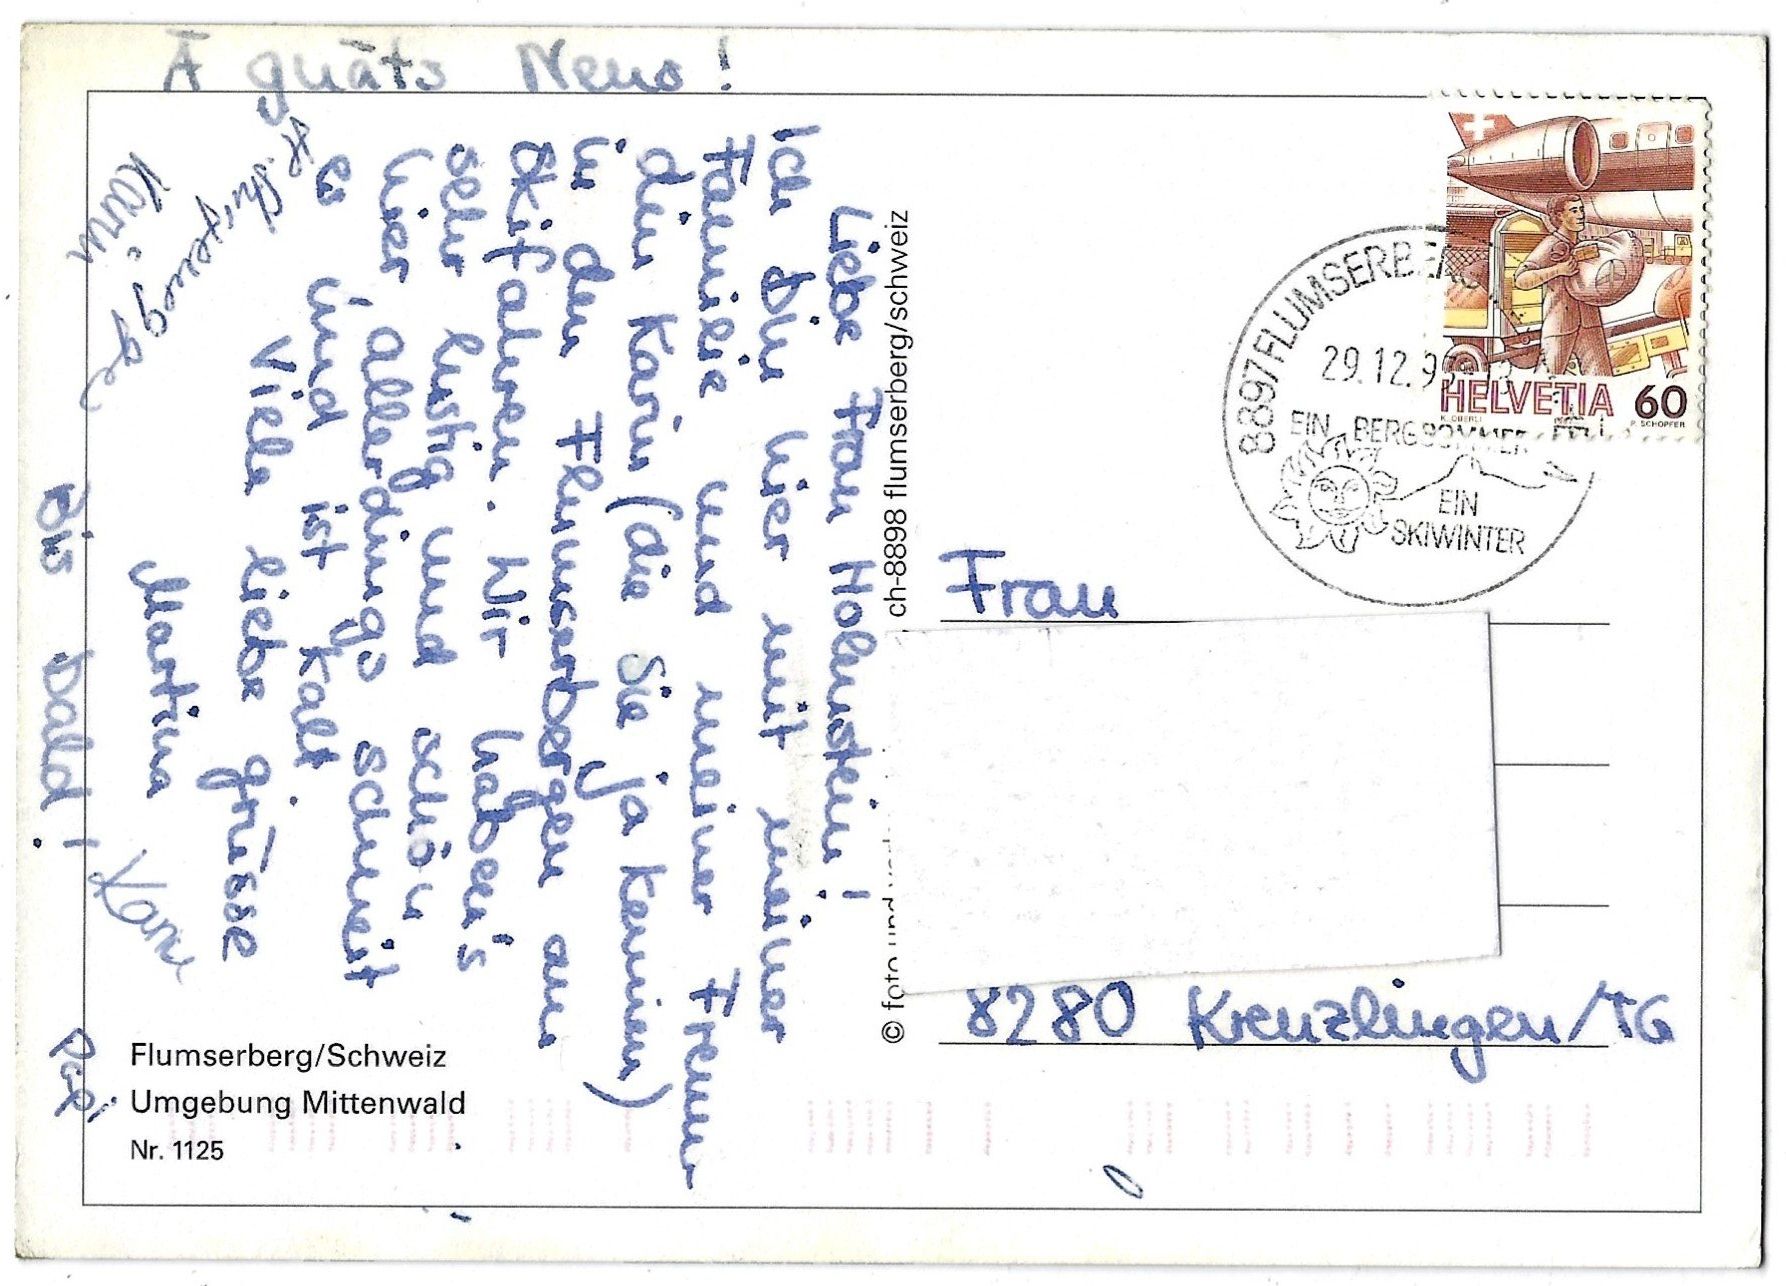 Ä guäts Neus!
Liebe Frau Holenstein!
Ich bin hier mit meiner
Familie und meiner Freun-
din Karin (die Sie ja kennen)
in den Flumserbergen am
Skifahren. Wir haben's
sehr lustig und schön
hier allerdings schneit
es und ist kalt.
Viele liebe grüsse
Martina
Karin
Karin
Bis bald!
Papi
Flumserberg/Schweiz
Umgebung Mittenwald
Nr. 1125
© foto und
ch-8898 flumserberg/schweiz
HELVETIA 60
K. OBERLI
P. SCHOPFER
8897 FLUMSERBERG
29.12.9
EIN BERGSOMMER
EIN
SKIWINTER
Frau
8280 Kreuzlingen/TG